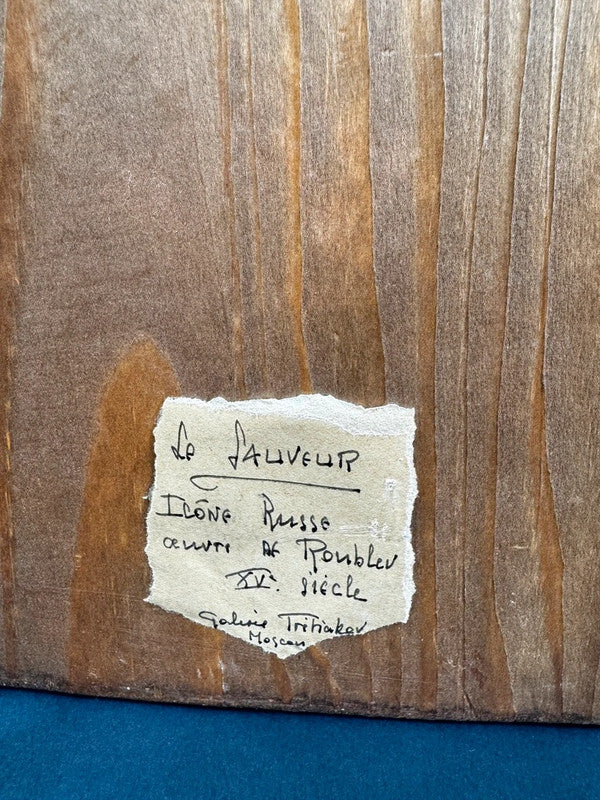 Le Sauveur
Icône Russe
œuvre de Roublev
XVe. siècle
Galerie Tretiakov
Moscou